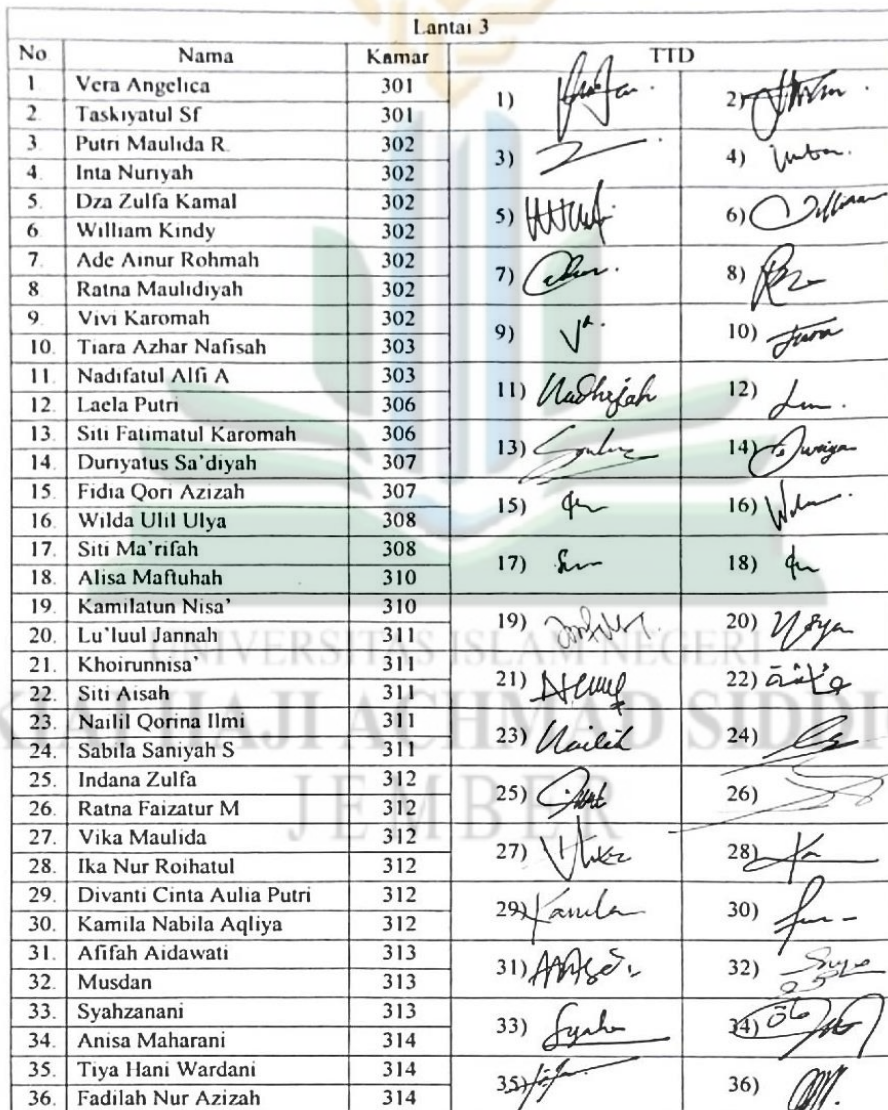 Lantai 3
No. Nama Kamar TTD
1. Vera Angelica 301 1)
2. Taskiyatul Sf 301 2)
3. Putri Maulida R. 302 3)
4. Inta Nuriyah 302 4)
5. Dza Zulfa Kamal 302 5)
6. William Kindy 302 6)
7. Ade Ainur Rohmah 302 7)
8. Ratna Maulidiyah 302 8)
9. Vivi Karomah 302 9)
10. Tiara Azhar Nafisah 303 10)
11. Nadifatul Alfi A 303 11)
12. Laela Putri 306 12)
13. Siti Fatimatul Karomah 306 13)
14. Duriyatus Sa'diyah 307 14)
15. Fidia Qori Azizah 307 15)
16. Wilda Ulil Ulya 308 16)
17. Siti Ma'rifah 308 17)
18. Alisa Maftuhah 310 18)
19. Kamilatun Nisa' 310 19)
20. Lu'luul Jannah 311 20)
21. Khoirunnisa' 311 21)
22. Siti Aisah 311 22)
23. Nailil Qorina Ilmi 311 23)
24. Sabila Saniyah S 311 24)
25. Indana Zulfa 312 25)
26. Ratna Faizatur M 312 26)
27. Vika Maulida 312 27)
28. Ika Nur Roihatul 312 28)
29. Divanti Cinta Aulia Putri 312 29)
30. Kamila Nabila Aqliya 312 30)
31. Afifah Aidawati 313 31)
32. Musdan 313 32)
33. Syahzanani 313 33)
34. Anisa Maharani 314 34)
35. Tiya Hani Wardani 314 35)
36. Fadilah Nur Azizah 314 36)
UNIVERSITAS ISLAM NEGERI
KIAI HAJI ACHMAD SIDDI
JEMBER